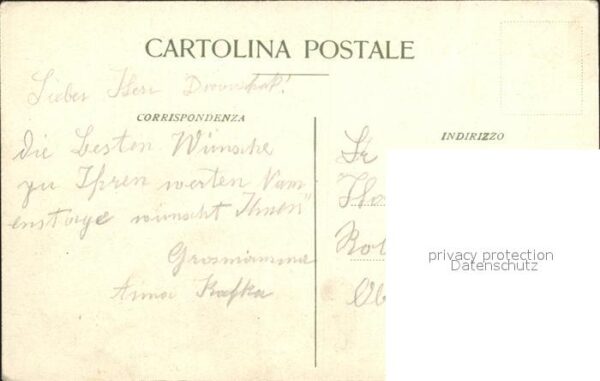 CARTOLINA POSTALE
Lieber Herr
CORRISPONDENZA
die besten Wünsche
zu Ihren werten Nam
enstage wünscht Ihnen
Grosmamma
Anna Kafka
INDIRIZZO
privacy protection
Datenschutz